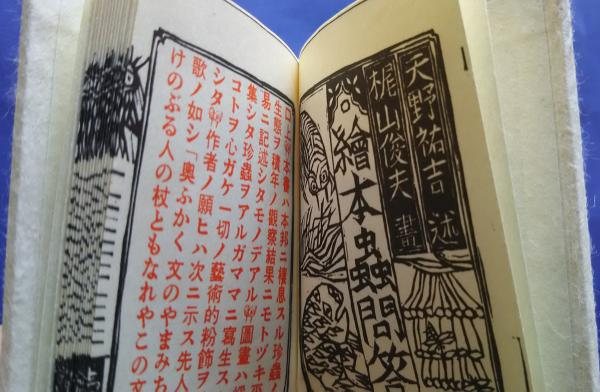 天野祐吉 述
梶山俊夫 畫
繪本蟲問
口上 本書ハ本邦ニ棲息スル珍蟲ノ
生態ヲ積年ノ觀察結果ニモトヅキ平
易ニ記述シタモノデアル 圖畫ハ採
集シタ珍蟲ヲアルガママニ寫生ス
コトヲ心ガケ一切ノ藝術的粉飾ヲ
シタ 作者ノ願ヒハ次ニ示ス先人
歌ノ如シ「奥ふかく文のやまみち
けのぶる人の杖ともなれやこの文